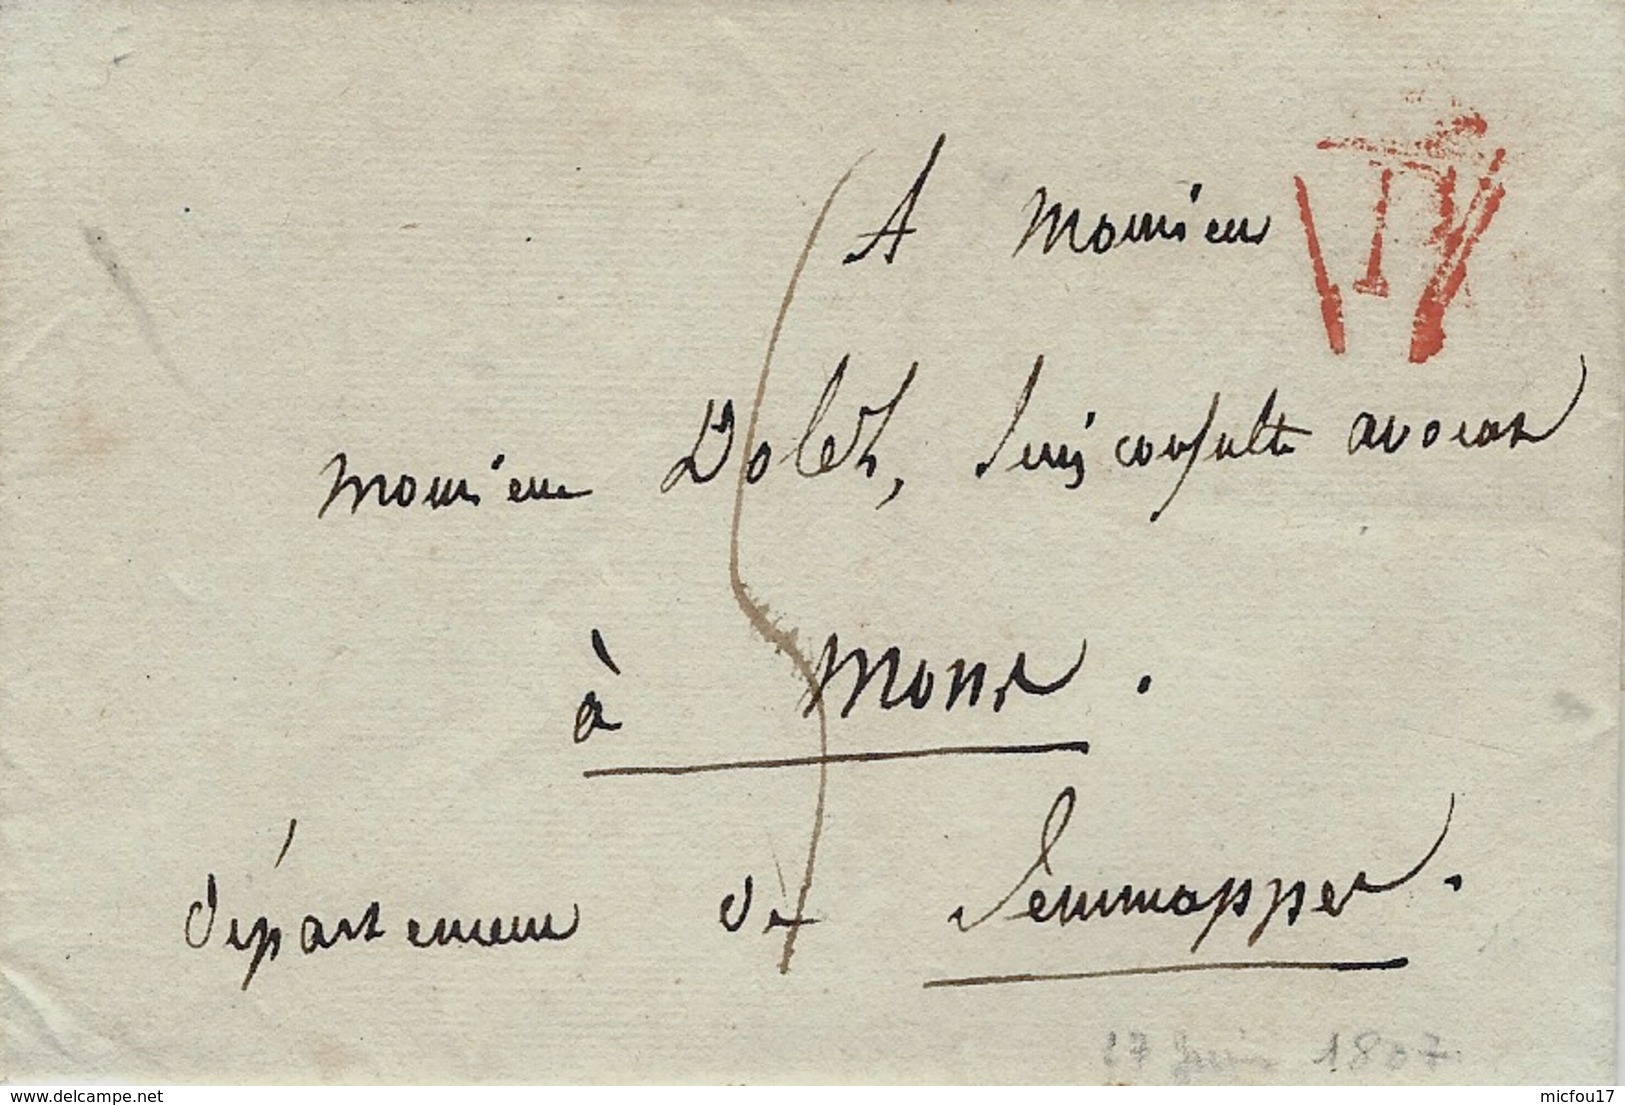 A Monsieur
Monsieur Dolez, Jurisconsulte avocat
à Mons.
département de Jemmappes.
17 Juin 1807
delcampe.net
micfou17